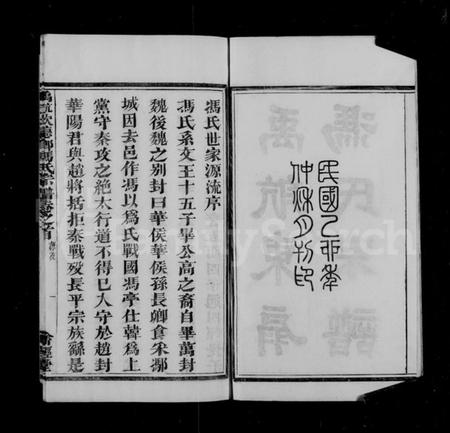 民國乙卯年
仲秋月刊印
馮氏世家源流序
馮氏系文王十五子畢公高之裔自畢萬封
魏後魏之别封曰華侯華侯孫長卿食采馮
城因去邑作馮以為氏戰國馮亭仕韓為上
黨守秦攻之絶太行道不得已入守於趙封
華陽君與趙將括拒秦戰歿長平宗族繇是